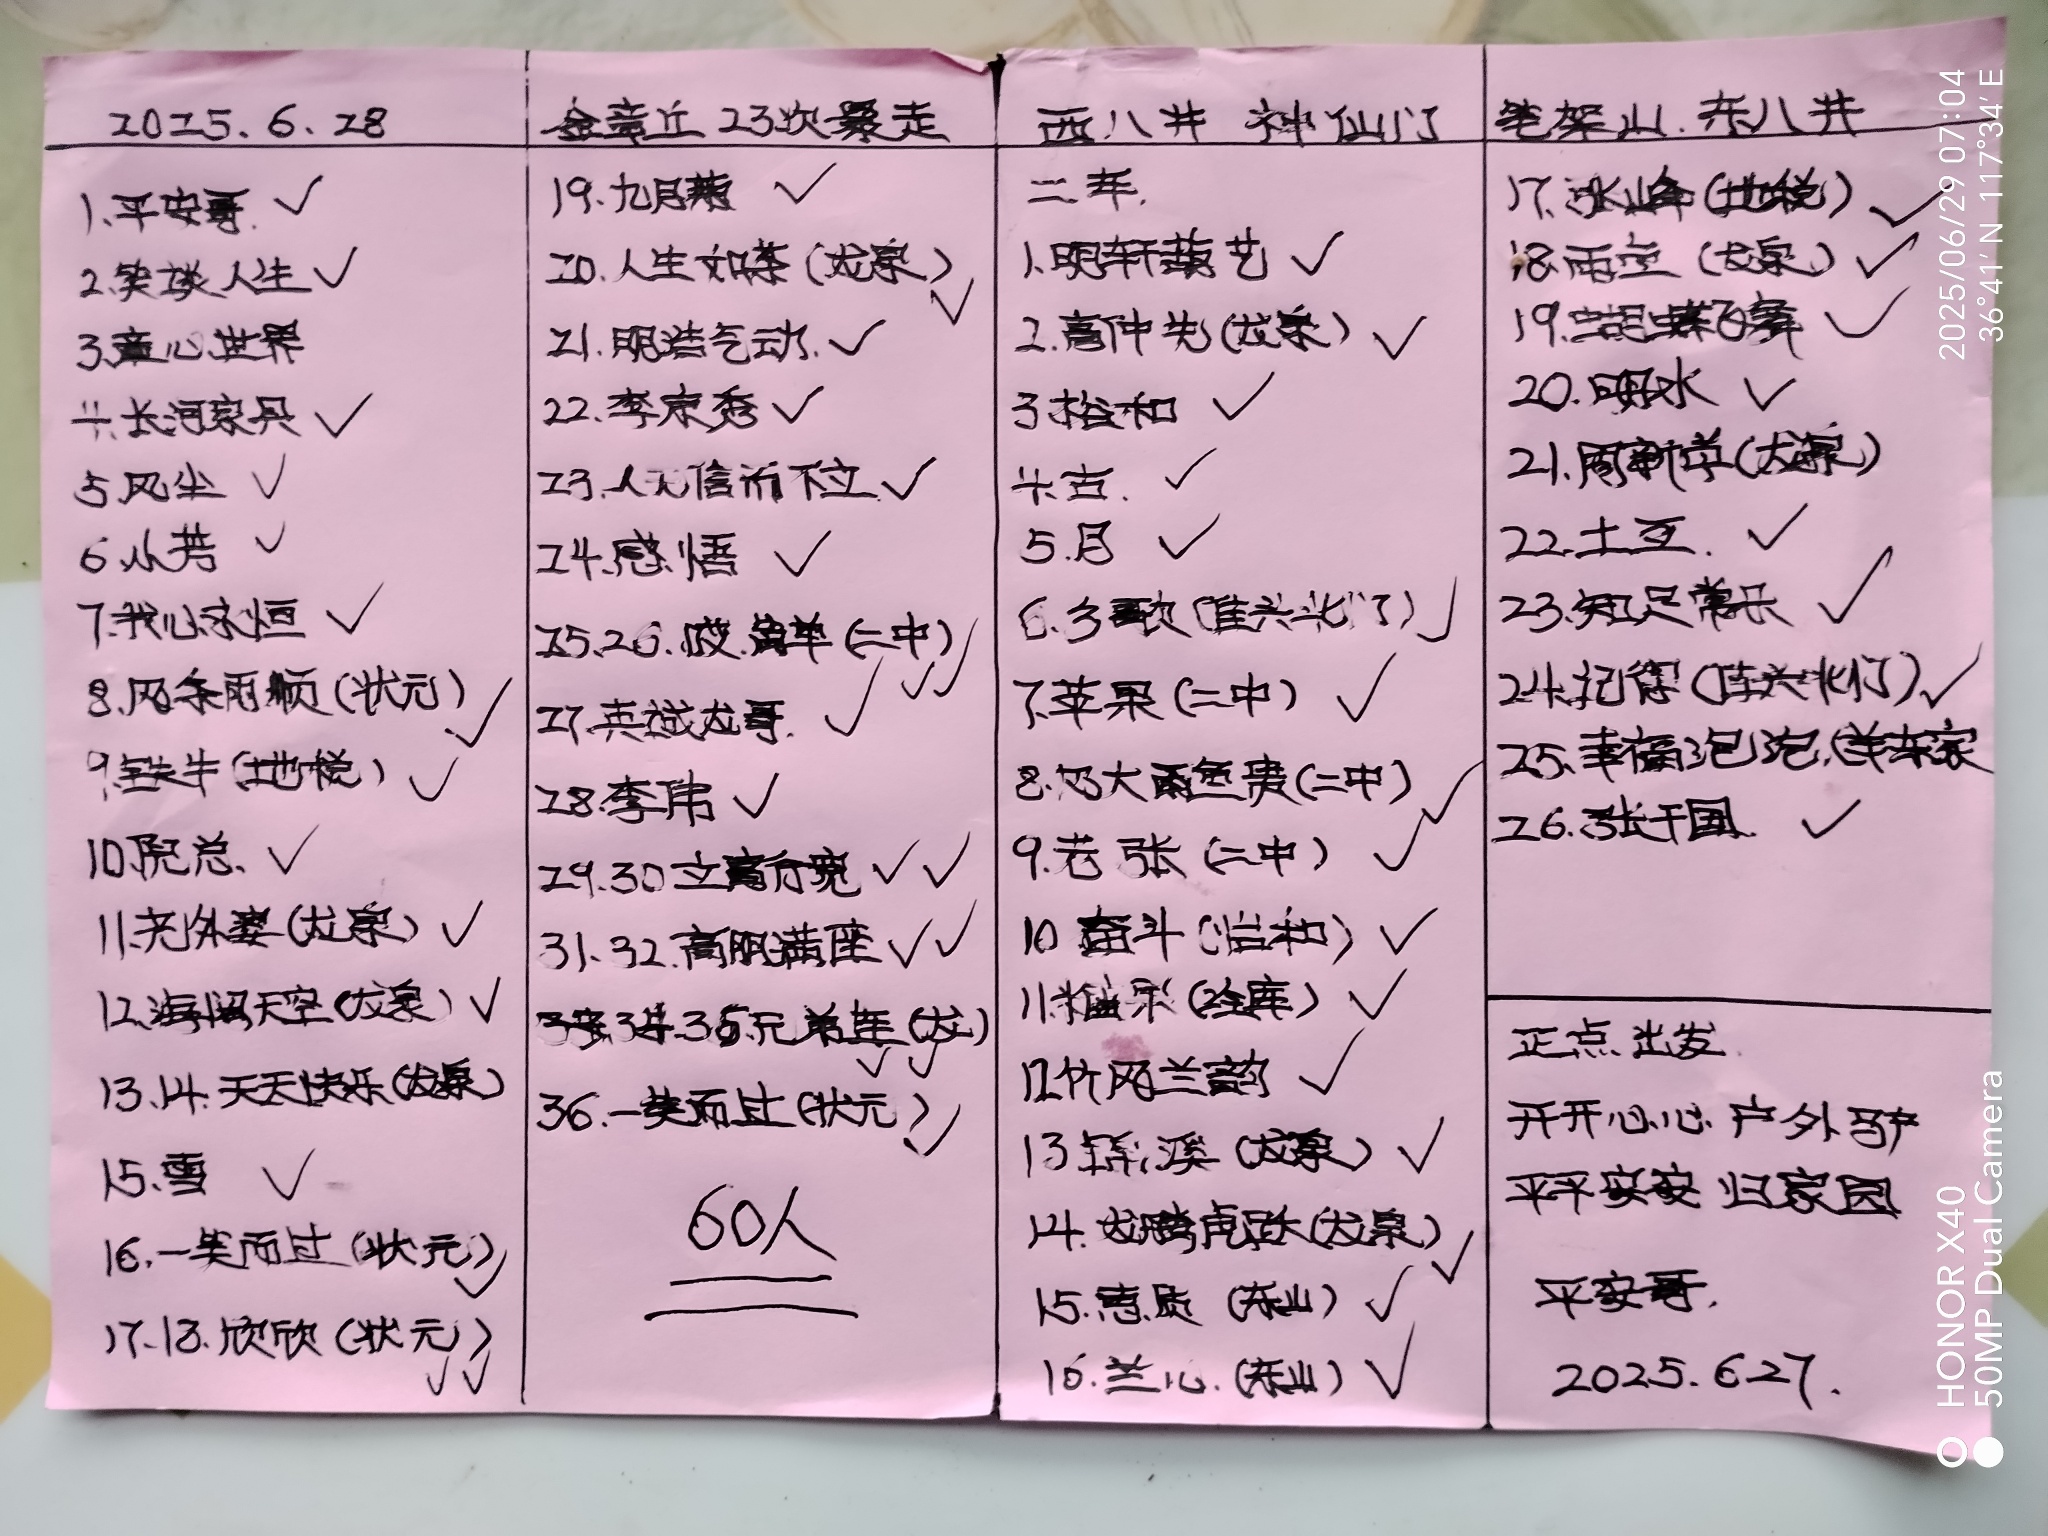 2025.6.28
1.平安哥.✓
2.笑谈人生✓
3.童心世界
4.长河家具✓
5.风尘✓
6.小芳✓
7.我心永恒✓
8.风条雨顺(状元)✓
9.铁牛(地税)✓
10.阮总.✓
11.老外婆(龙泉)✓
12.海阔天空(龙泉)✓
13.14.天天快乐(龙泉)
15.雪✓
16.一笑而过(状元)✓
17.18.欣欣(状元)✓✓
金章丘23次暴走
19.九月菊✓
20.人生如茶(龙泉)✓
21.明浩气动.✓
22.李宗秀✓
23.人无信而不立✓
24.感悟✓
25.26.(二中)✓✓
27.英诚龙哥.✓
28.李伟✓
29.30立高行宽✓✓
31.32.高朋满座✓✓
34.35.兄弟连(龙)✓✓
36.一笑而过(状元)✓
60人
西八井 神仙门
二.车.
1.明轩蔬艺✓
2.高仲先(龙泉)✓
3.裕和✓
4.古.✓
5.月✓
6.多歌✓
7.苹果(二中)✓
8.(二中)✓
9.老张(二中)✓
10 奋斗(怡和)✓
11.(冷库)✓
12.竹风兰韵✓
13(龙泉)✓
14.龙腾虎跃(龙泉)✓
15.惠质(东山)✓
16.兰心.(东山)✓
笔架山.东八井
17.张峰(地税)✓
18.雨空(龙泉)✓
19.蝴蝶飞舞✓
20.明水✓
21.周新学(龙泉)
22.土豆.✓
23.知足常乐✓
24.记得✓
25.幸福泡泡(羊东家
26.张千国.✓
正点出发.
开开心心.户外驴
平平安安 归家园
平安哥.
2025.6.27.
2025/06/29 07:04
36°41′N 117°34′E
HONOR X40
50MP Dual Camera